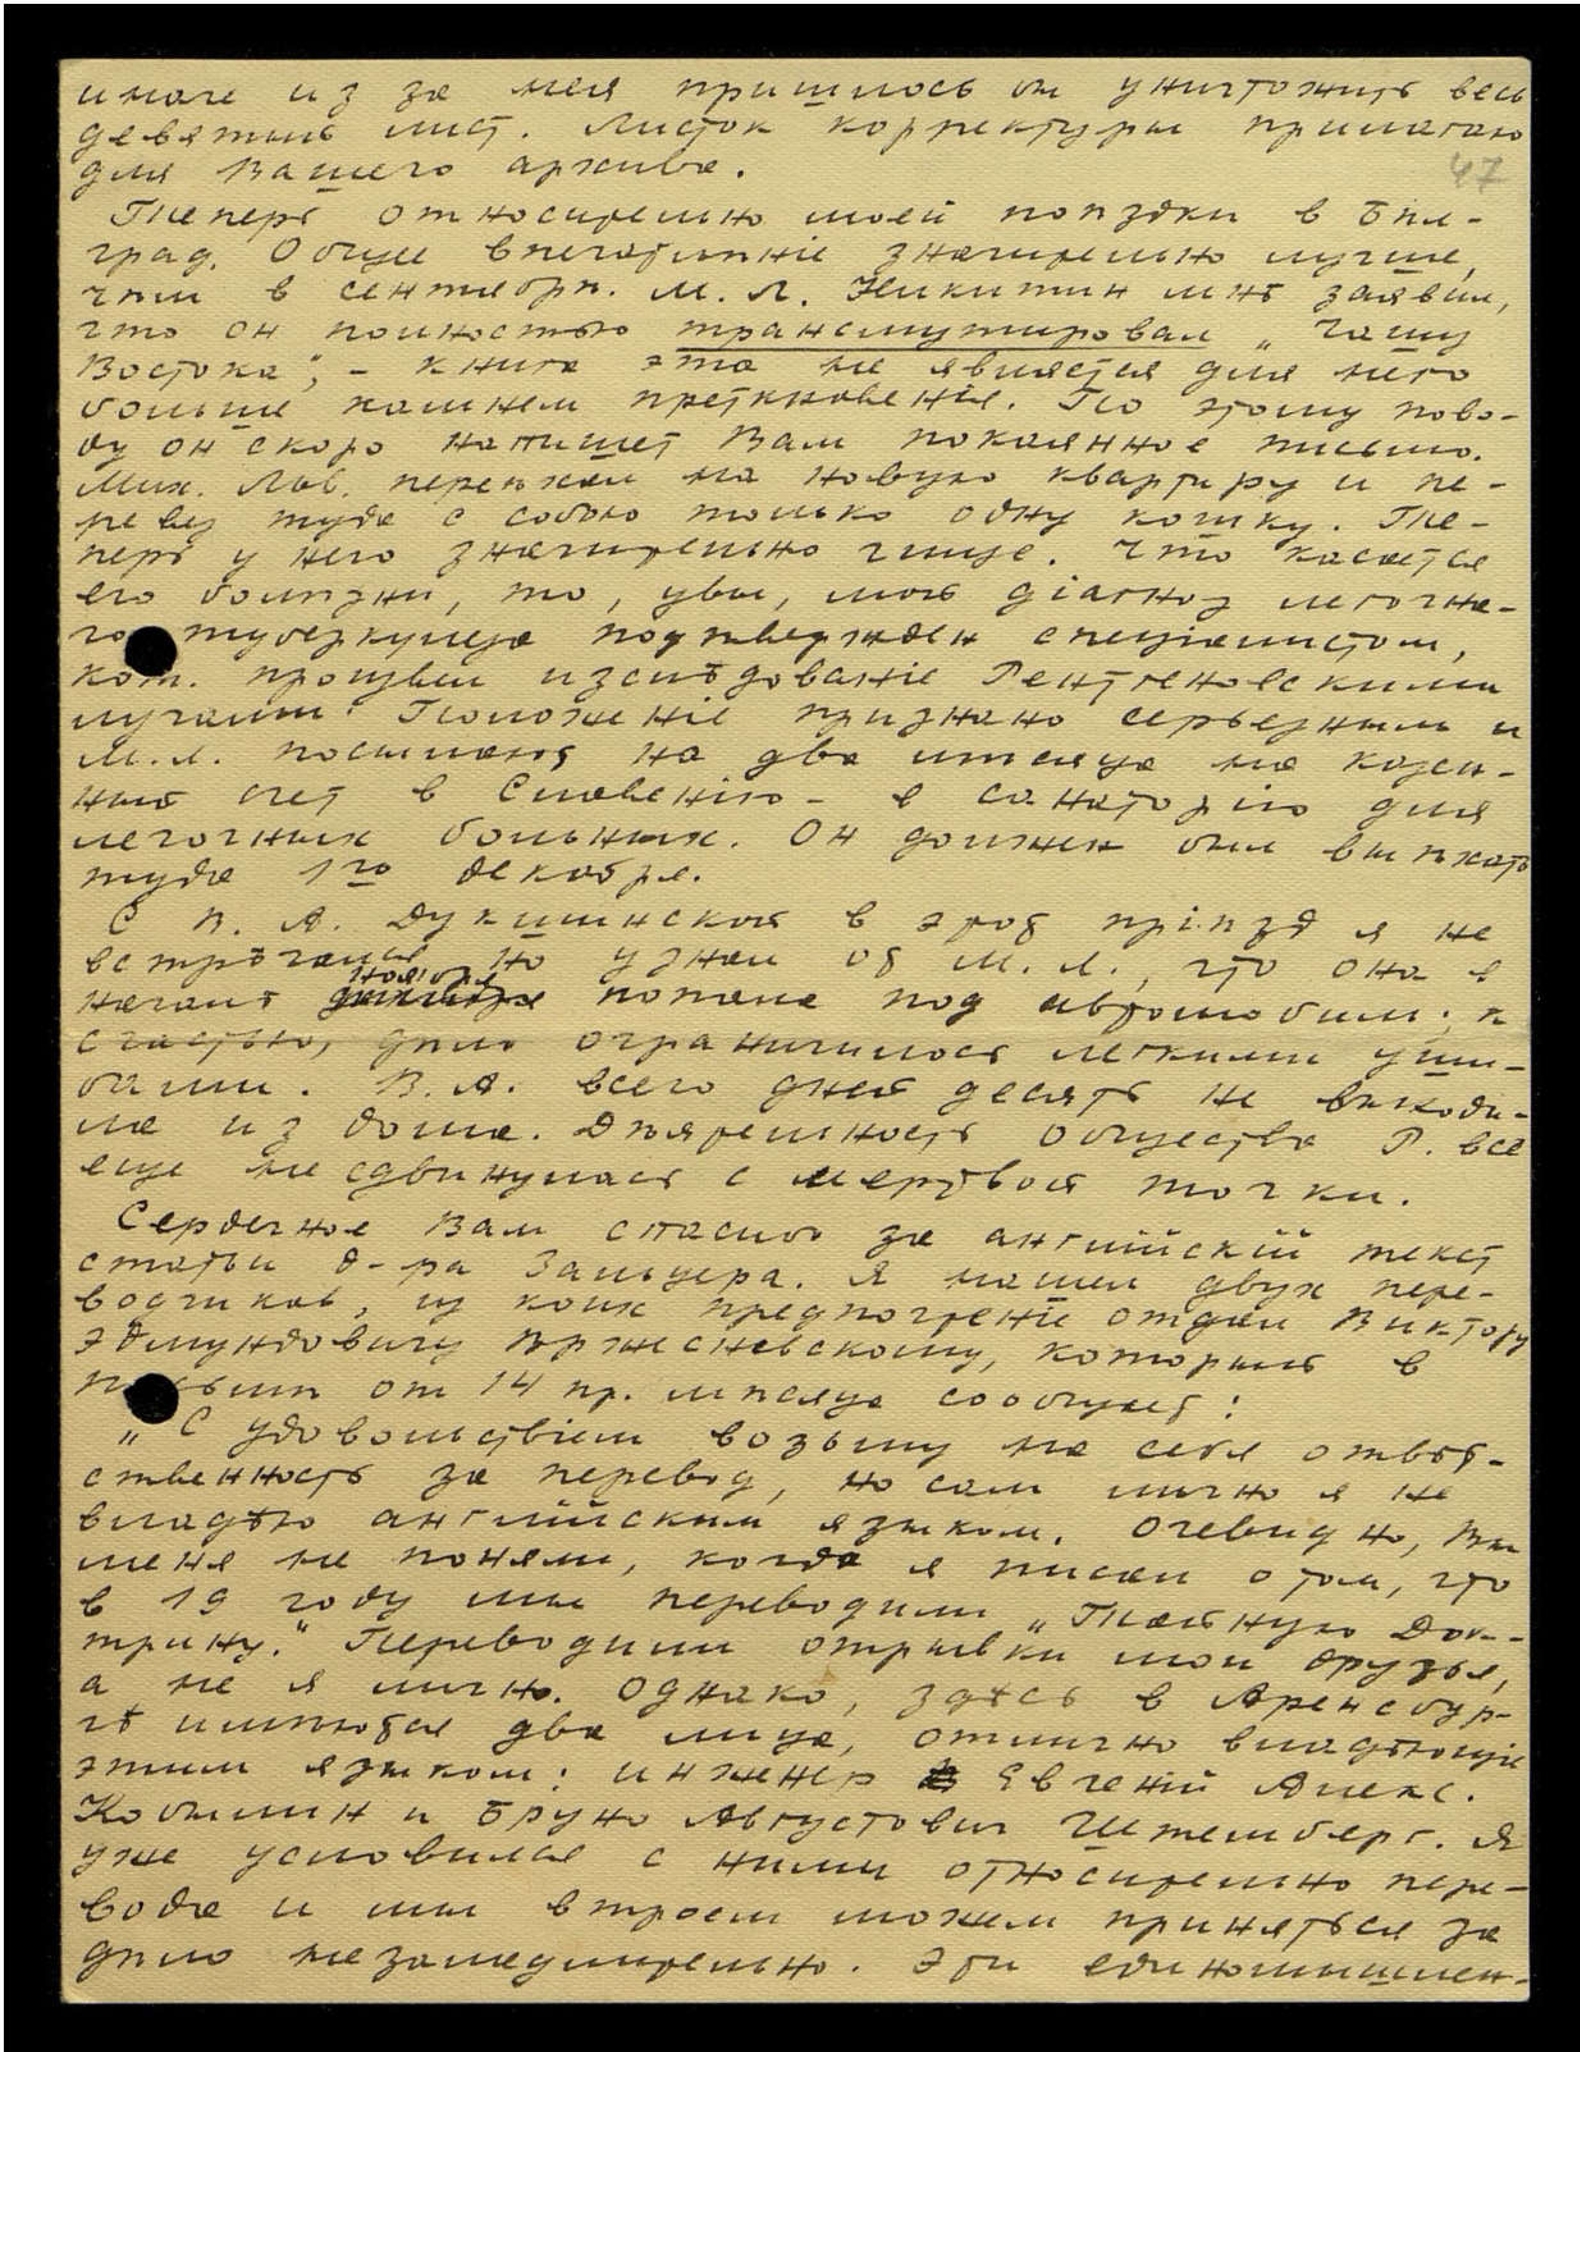 иначе из за меня пришлось бы уничтожить весь
девятый лист. Листок корректуры прилагаю
для Вашего архива.
47
Теперь относительно моей поѣздки в Бѣл-
град. Общее впечатлѣніе значительно лучше,
чѣм в сентябрѣ. М. Л. Никитин мнѣ заявил,
что он полностью трансмутировал „Чашу
Востока“, - книга эта не является для него
больше камнем преткновенія. По этому пово-
ду он скоро напишет Вам покаянное письмо.
Мих. Льв. переѣхал на новую квартиру и пе-
ревез туда с собою только одну кошку. Те-
перь у него значительно чище. Что касается
его болѣзни, то, увы, мой діагноз легочна-
го туберкулеза подтвержден спеціалистом,
кот. произвел изслѣдованіе Рентгеновскими
лучами. Положеніе признано серьезным и
М. Л. посылают на два мѣсяца на казен-
ный счет в Словенію - в санаторію для
легочных больных. Он должен был выѣхать
туда 1го декабря.
С В. А. Дукшинской в этот пріѣзд я не
встрѣчался, но узнал от М. Л., что она в
ноября
началѣ попала под автомобиль; к
счастью, дѣло ограничилось легкими уши-
бами. В. А. всего дней десять не выходи-
ла из дома. Дѣятельность Общества Р. все
еще не сдвинулась с мертвой точки.
Сердечное Вам спасибо за англійскій текст
статьи д-ра Зальцера. Я нашел двух пере-
водчиков, из коих предпочтеніе отдал Виктору
Эдмундовичу Вржесневскому, который в
письмѣ от 14 пр. мѣсяца сообщает:
„С удовольствіем возьму на себя отвѣт-
ственность за перевод, но сам лично я не
владѣю англійским языком. Очевидно, Вы
меня не поняли, когда я писал о том, что
в 19 году мы переводили „Тайную Док-
трину.“ Переводили отрывки мои друзья,
а не я лично. Однако, здѣсь в Аренсбур-
гѣ имѣются два лица, отлично владѣющіе
этим языком: инженер Евгеній Алекс.
Кобылин и Бруно Августович Штемберг. Я
уже условился с ними относительно пере-
вода и мы втроем можем приняться за
дѣло незамедлительно. Эти единомышлен-